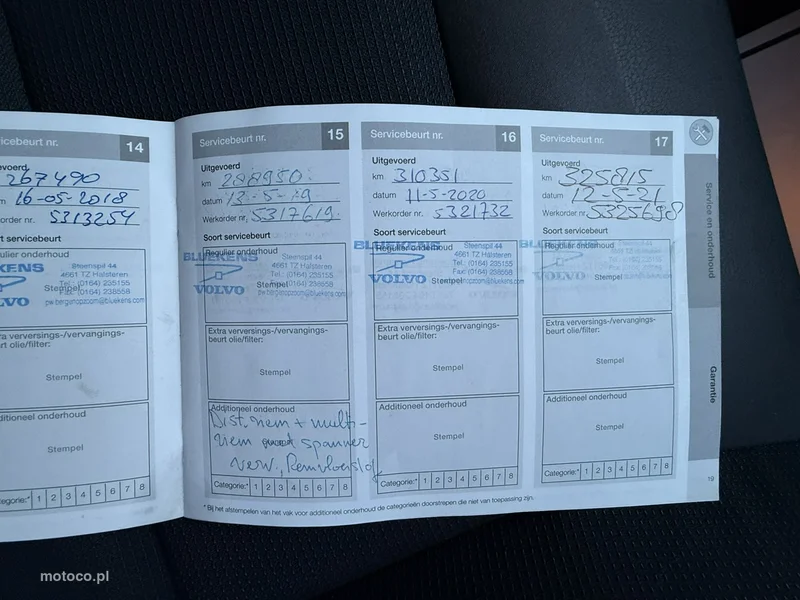 Servicebeurt nr. 14
267490
16-05-2018
order nr. 5313254
Steenspil 44
4661 TZ Halsteren
Tel.: (0164) 235155
Stempel
Fax: (0164) 238558
VOLVO
pw.bergenopzoom@bluekens.com
Stempel
Additioneel onderhoud
Stempel
Categorie:* 1 2 3 4 5 6 7 8
Servicebeurt nr. 15
Uitgevoerd
km 288950
datum 13-5-19
Werkorder nr. 5317619
Soort servicebeurt
Regulier onderhoud
BLUEKENS
Steenspil 44
4661 TZ Halsteren
Tel.: (0164) 235155
Stempel
Fax: (0164) 238558
VOLVO
pw.bergenopzoom@bluekens.com
Extra verversings-/vervangings-
beurt olie/filter:
Stempel
Additioneel onderhoud
Dist. riem + multi-
riem spanner
verv., Remvloeistof
Categorie:* 1 2 3 4 5 6 7 8
Servicebeurt nr. 16
Uitgevoerd
km 310351
datum 11-5-2020
Werkorder nr. 5321732
Soort servicebeurt
Regulier onderhoud
BLUEKENS
Steenspil 44
4661 TZ Halsteren
Tel.: (0164) 235155
Fax: (0164) 238558
VOLVO
Stempel
Extra verversings-/vervangings-
beurt olie/filter:
Stempel
Additioneel onderhoud
Stempel
Categorie:* 1 2 3 4 5 6 7 8
Servicebeurt nr. 17
Uitgevoerd
km 325815
datum 12-5-21
Werkorder nr. 5325698
Soort servicebeurt
Regulier onderhoud
BLUEKENS
VOLVO
Stempel
Extra verversings-/vervangings-
beurt olie/filter:
Stempel
Additioneel onderhoud
Stempel
Categorie:* 1 2 3 4 5 6 7 8
* Bij het afstempelen van het vak voor additioneel onderhoud de categorieën doorstrepen die niet van toepassing zijn.
Service en onderhoud
Garantie
19
motoco.pl